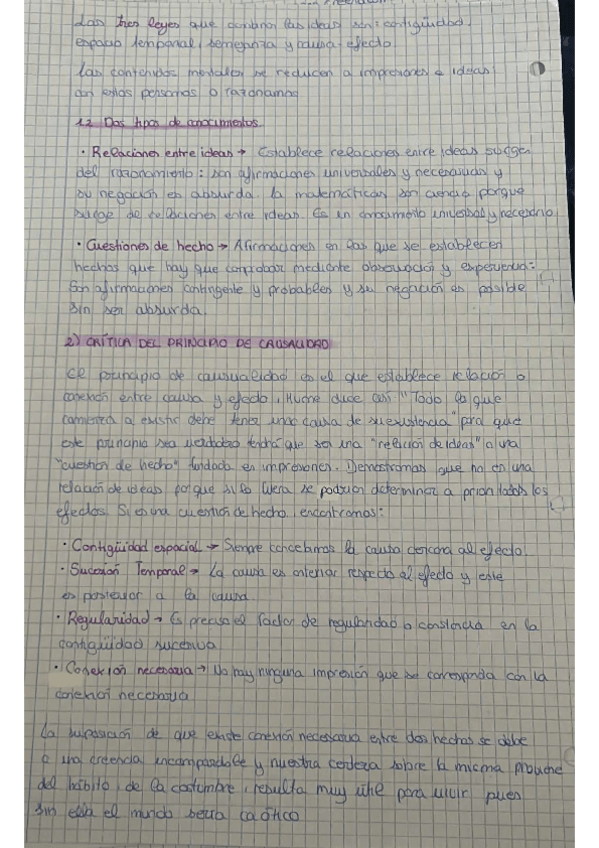 Las tres leyes que combinan las ideas son: contigüidad
espacio temporal, semejanza y causa-efecto.
Las contenidos mentales se reducen a impresiones e ideas:
con estas pensamos o razonamos
1.2 Dos tipos de conocimientos
· Relaciones entre ideas → Establece relaciones entre ideas surge
del razonamiento: son afirmaciones universales y necesarias y
su negación es absurda. La matemáticas son ciencia porque
surge de relaciones entre ideas. Es un conocimiento universal y necesario
· Cuestiones de hecho → Afirmaciones en las que se establecen
hechos que hay que comprobar mediante observación y experiencia:
Son afirmaciones contingente y probables y su negación es posible
sin ser absurda.
2) CRÍTICA DEL PRINCIPIO DE CAUSALIDAD
El principio de causualidad es el que establece relación o
conexión entre causa y efecto, Hume dice así "Todo lo que
comienza a existir debe tener una causa de su existencia" para que
este principio sea verdadero tendrá que ser una "relación de ideas" o una
"cuestión de hecho" fundada en impresiones. Demostramos que no es una
relación de ideas porque si lo fuera se podrían determinar a priori todos los
efectos. Si es una cuestión de hecho encontramos:
· Contigüidad espacial → Siempre concebimos la causa cercana al efecto.
· Sucesión Temporal → La causa es anterior respecto al efecto y este
es posterior a la causa.
· Regularidad → Es precisa el factor de regularidad o constancia en la
contigüidad sucesiva
· Conexión necesaria → No hay ninguna impresión que se corresponda con la
conexión necesaria
La suposición de que existe conexión necessaria entre dos hechos se debe
a una creencia incomprobable y nuestra certeza sobre la misma proviene
del hábito, de la costumbre, resulta muy útil para vivir pues
sin ella el mundo sería caótico